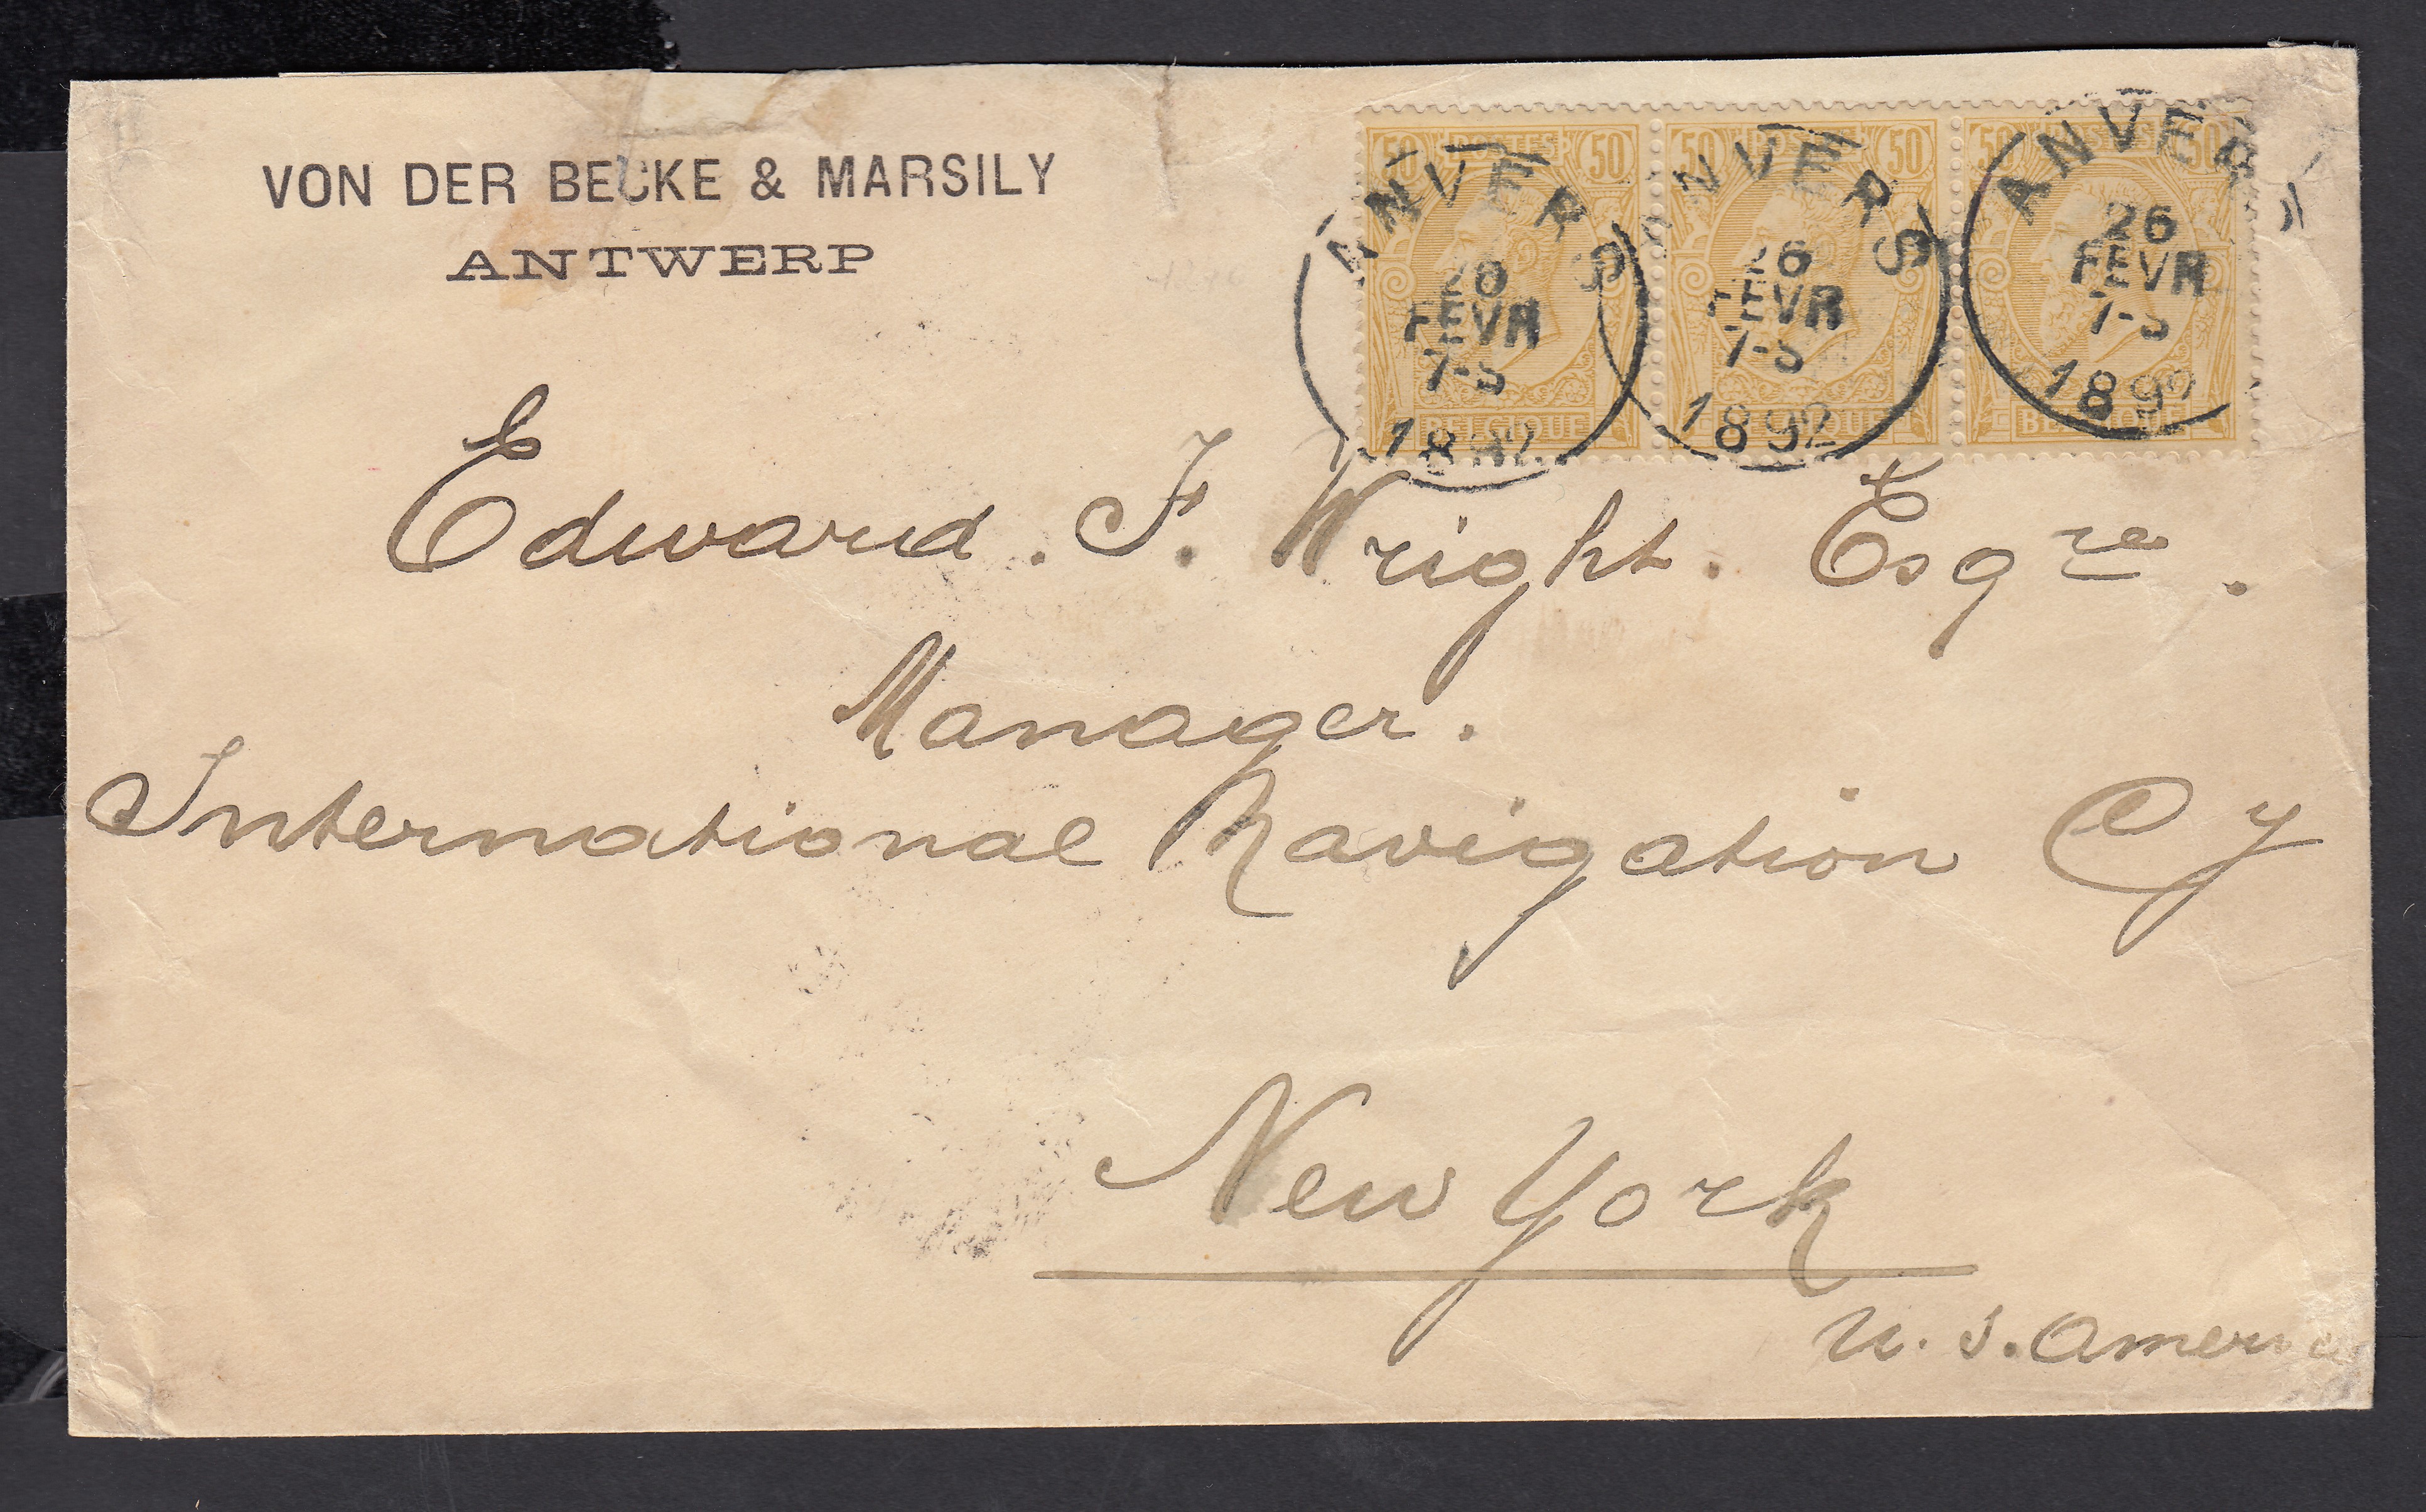 VON DER BECKE & MARSILY
ANTWERP
50 POSTES 50 50 POSTES 50 50 POSTES 50
ANVERS ANVERS ANVERS
26 26 26
FEVR FEVR FEVR
7-S 7-S 7-S
1892 1892 1892
BELGIQUE BELGIQUE BELGIQUE
Edward. F. Wright. Esqre.
Manager.
International Navigation Cy
New York
U. S. America